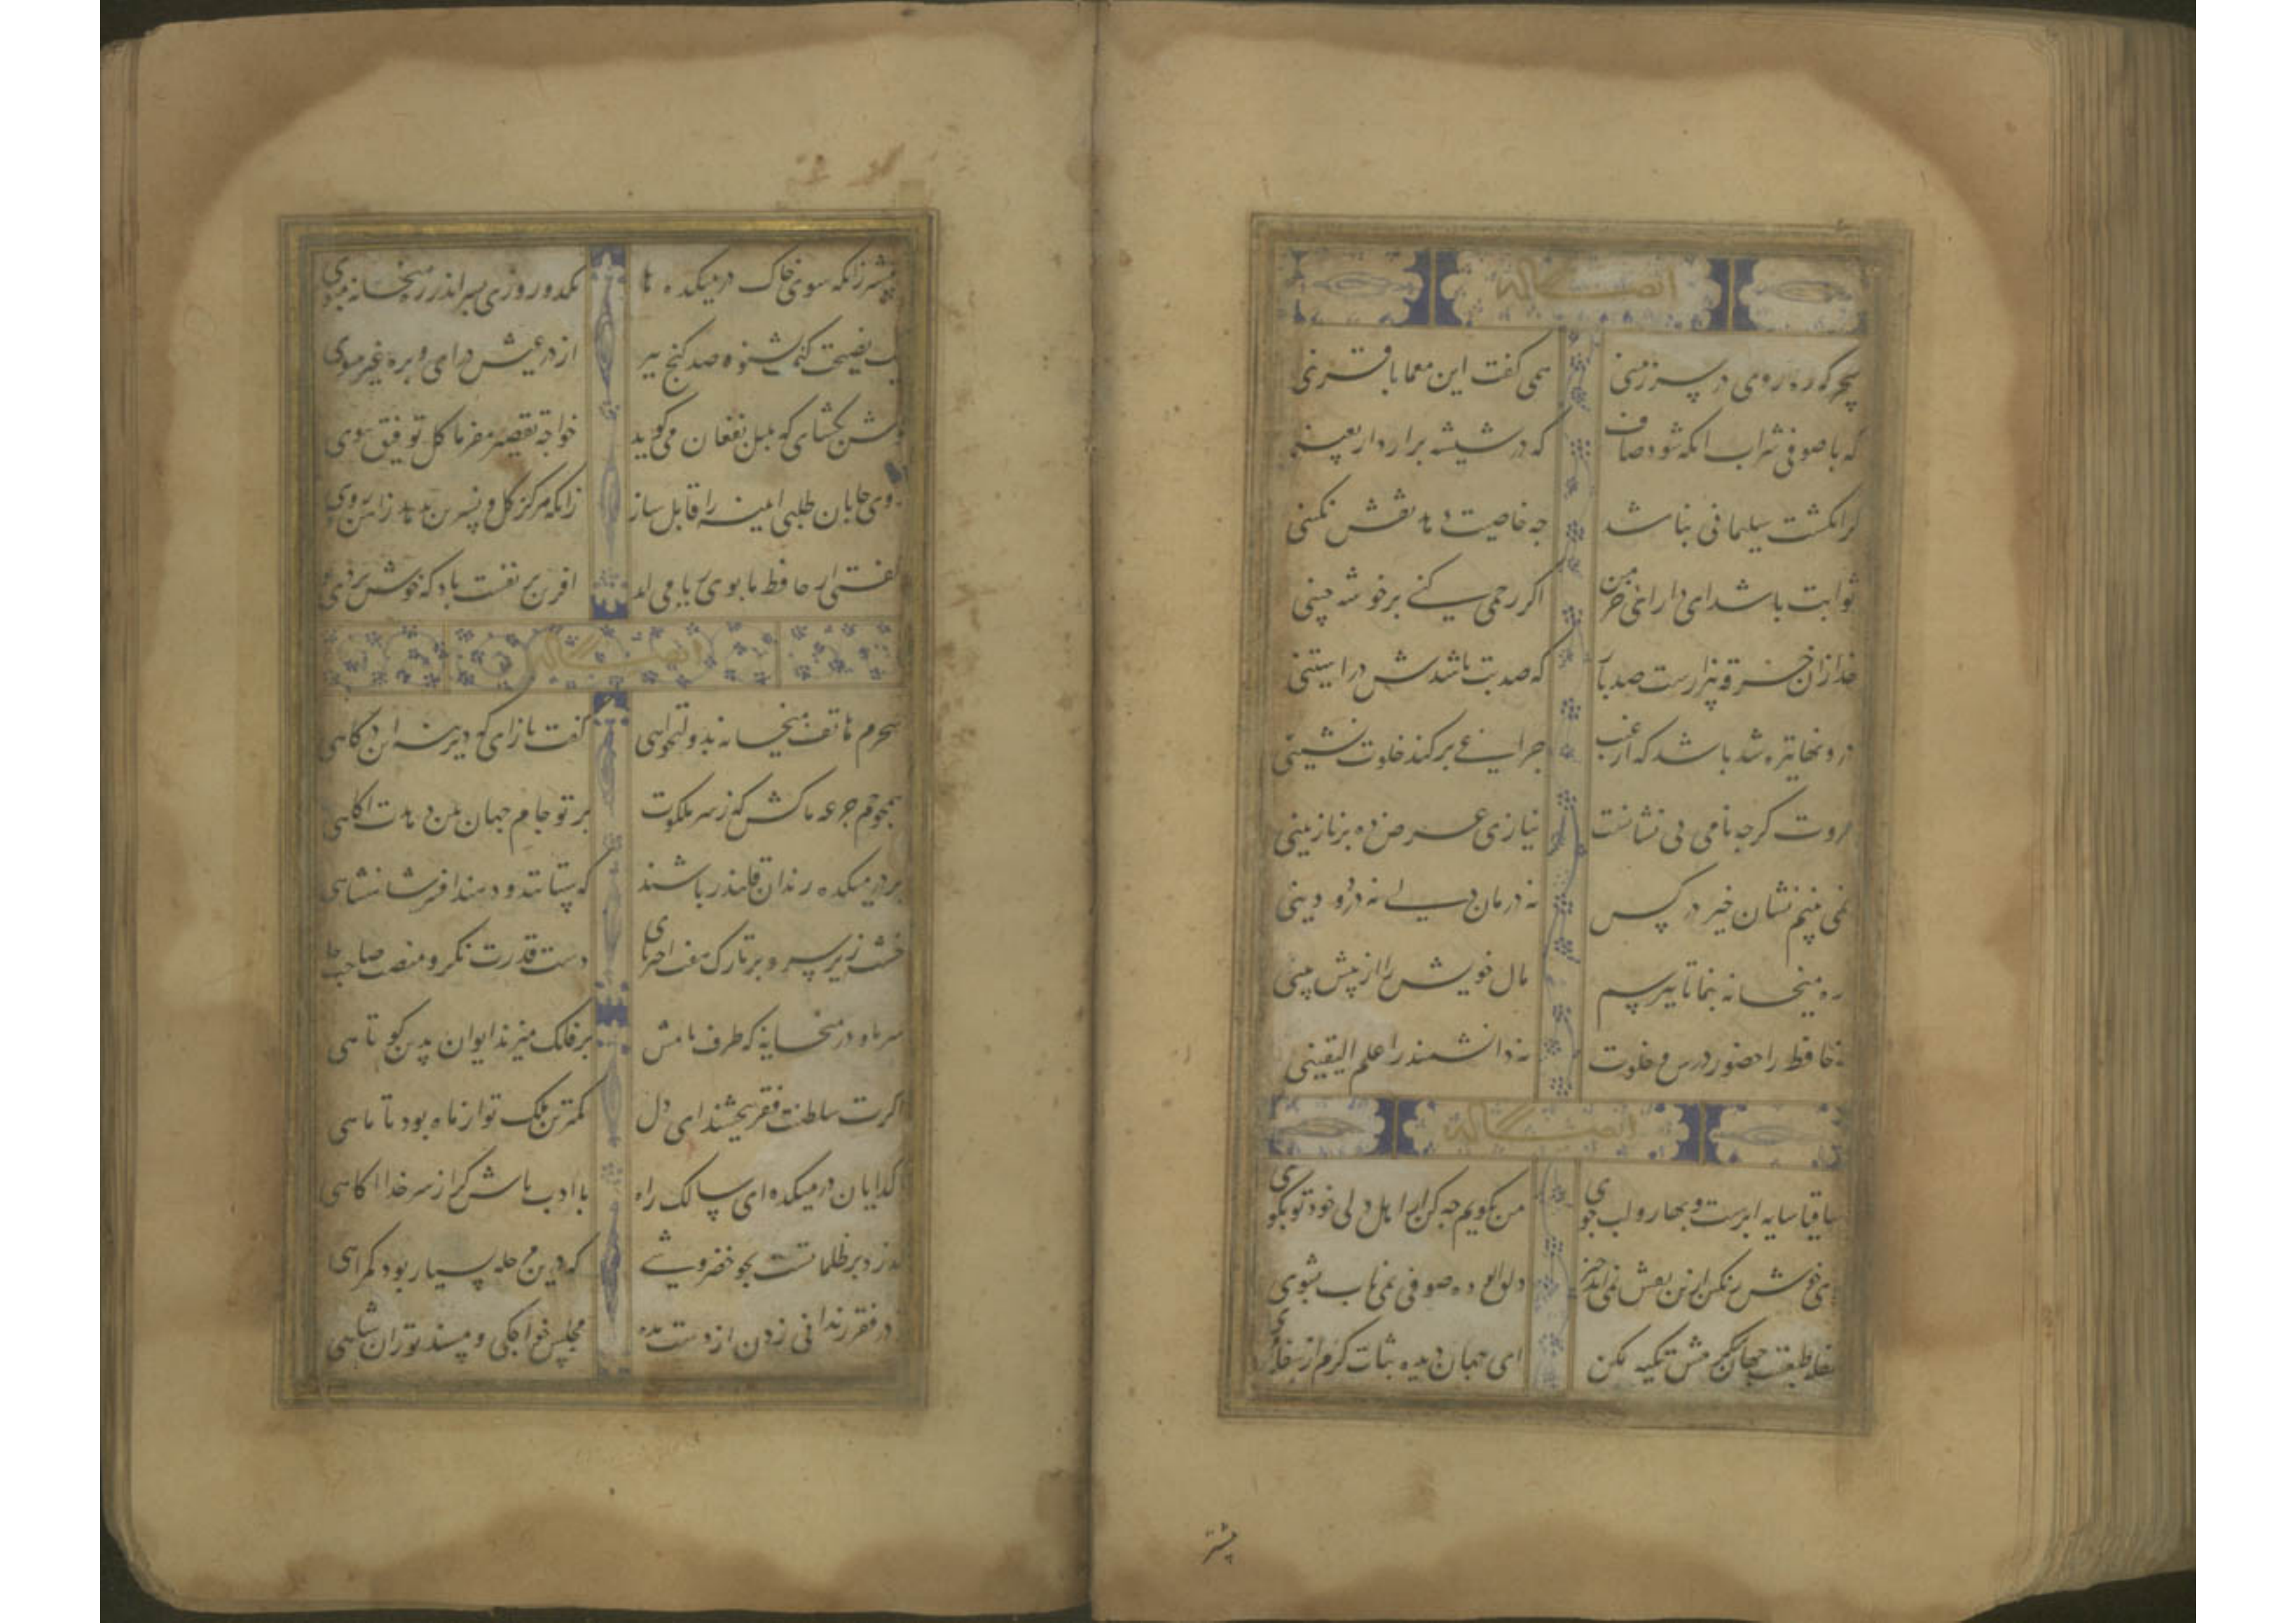 ایضا له
سحرکه ره روی در سرزمنی همی کفت این معما با قرینی
که با صوفی شراب انکه شود صاف که در شیشه برارد اربعینی
کر انکشت سلیمانی نباشد چه خاصیت دهد نقش نکینی
ثوابت باشد ای دارای خرمن اکر رحمی کنی بر خوشه چینی
خدا زان خرقه بیزارست صد بار که صد بت باشدش در استینی
درونها تیره شد باشد که از غیب چراغی بر کند خلوت نشینی
مروت کرچه نامی بی نشانست نیازی عرضه ده بر نازنینی
نمی بینم نشان خیر در کس نه درمان دلی نه درد دینی
ره میخانه بنما تا بپرسم مال خویش را از پیش بینی
نه حافظ را حضور درس و خلوت نه دانشمند را علم الیقینی
ایضا له
ساقیا سایه ابرست و بهار و لب جوی من نکویم چه کن ار اهل دلی خود تو بکوی
بوی یکرنکی ازین نقش نمی اید خیز دلق الوده صوفی بمی ناب بشوی
سفله طبعست جهان بر کرمش تکیه مکن ای جهان دیده ثبات کرم از سفله مجوی
پیشتر
پیشتر زانکه شوی خاک در میکده ها یکدو روزی بسر اندر ره میخانه بپوی
یک نصیحت کنمت بشنو و صد کنج ببر از در عیش درای و بره عیب مپوی
کوش بکشای که بلبل بفغان می کوید خواجه تقصیر مفرما کل توفیق ببوی
روی جانان طلبی اینه را قابل ساز زانکه هرکز کل و نسرین ندمد ز اهن و روی
کفتی از حافظ ما بوی ریا می اید افرین بر نفست باد که خوش بردی بوی
ایضا له
سحرم هاتف میخانه بدولتخواهی کفت بازای که دیرینه این درکاهی
همچو جم جرعه ما کش که ز سر ملکوت پرتو جام جهان بین دهدت اکاهی
بر در میکده رندان قلندر باشند که ستانند و دهند افسر شاهنشاهی
خشت زیر سر و بر تارک هفت اختر پای دست قدرت نکر و منصب صاحب جاهی
سر ما و در میخانه که طرف بامش بر فلک میزند ایوان بدین کوتاهی
اکرت سلطنت فقر ببخشند ای دل کمترین ملک تو از ماه بود تا ماهی
با کدایان در میکده ای سالک راه با ادب باش کر از سر خدا اکاهی
که درین مرحله بسیار بود کمراهی
در فقر ندانی زدن از دست مده مجلس خواجکی و مسند توران شاهی